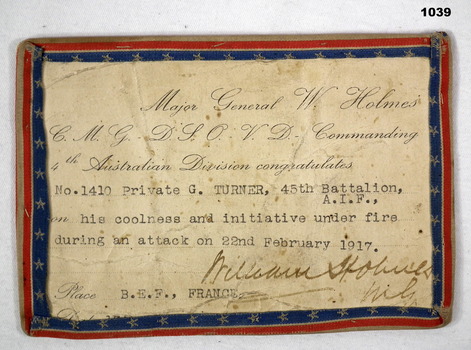 1039
Major General W. Holmes
C.M.G. D.S.O. V.D. Commanding
4th Australian Division congratulates
No.1410 Private G. TURNER, 45th Battalion,
A.I.F.,
on his coolness and initiative under fire
during an attack on 22nd February 1917.
William Holmes
M.G.
Place B.E.F., FRANCE.